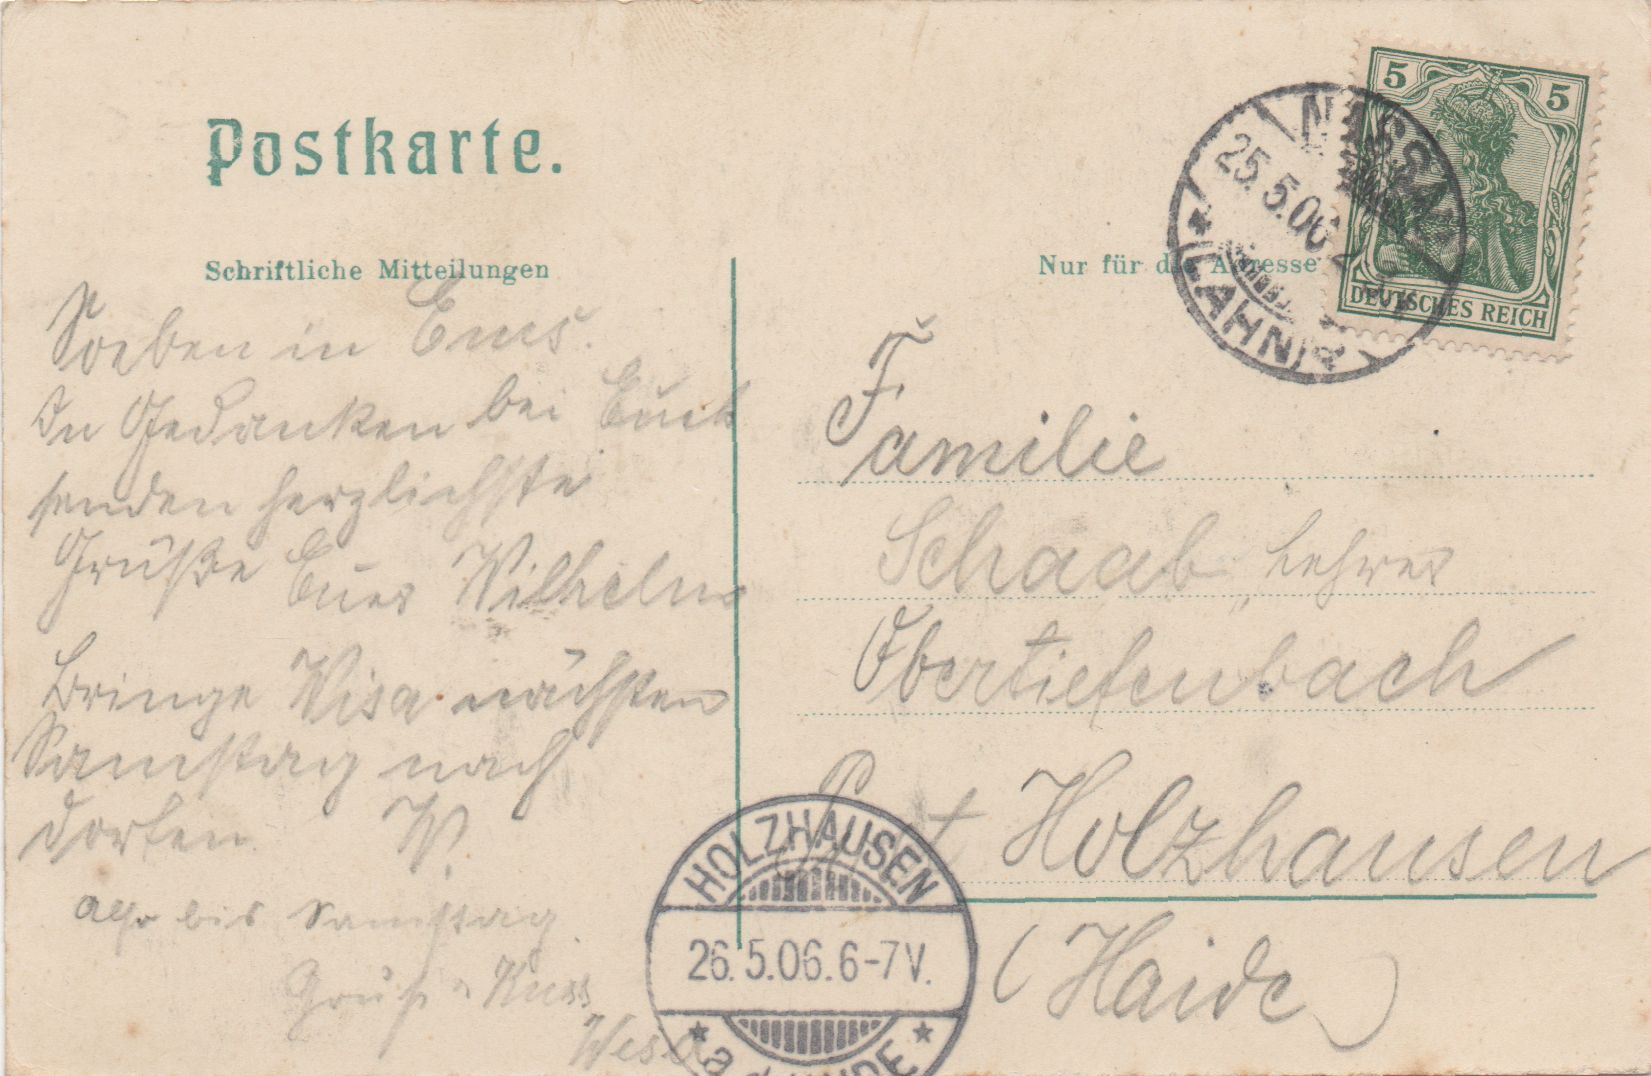 Postkarte.
Schriftliche Mitteilungen
Nur für die Adresse
5 5
DEUTSCHES REICH
NASSAU
25.5.06
(LAHN)
Soeben in Ems.
In Gedanken bei Euch
senden herzlichste
Grüße Euer Wilhelm
Bringe Wisa nächsten
Samstag nach
dorten. W.
also bis Samstag
Gruß u Kuss
Familie
Schaab, Lehrer
Obertiefenbach
Post Holzhausen
(Haide)
HOLZHAUSEN
26.5.06.6-7V.
a.d. HAIDE